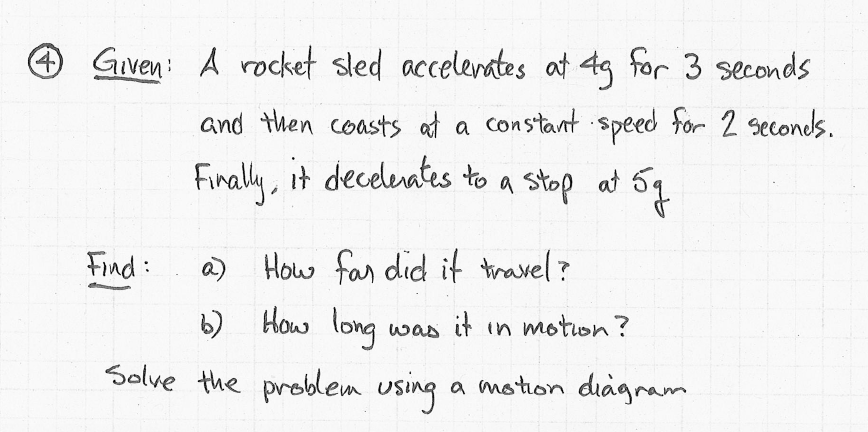 ④ Given: A rocket sled accelerates at 4g for 3 seconds
and then coasts at a constant speed for 2 seconds.
Finally, it decelerates to a stop at 5g
Find: a) How far did it travel?
b) How long was it in motion?
Solve the problem using a motion diagram